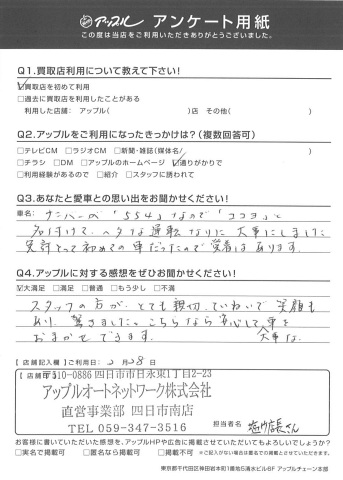 アップル アンケート用紙
この度は当店をご利用いただきありがとうございました。
Q1.買取店利用について教えて下さい!
☑買取店を初めて利用
□過去に買取店を利用したことがある
利用した店舗: アップル( )店 その他( )
Q2.アップルをご利用になったきっかけは?(複数回答可)
□テレビCM □ラジオCM □新聞・雑誌(媒体名/ )
□チラシ □DM □アップルのホームページ ☑通りがかりで
□利用経験があるので □紹介 □スタッフに誘われて
Q3.あなたと愛車との思い出をお聞かせください!
車名: ナンバーが「554」なので「ココヨ」と
名付けて、ヘタな運転なりに大事にしました
免許とって初めての車だったので愛着はあります。
Q4.アップルに対する感想をぜひお聞かせください!
☑大満足 □満足 □普通 □もう少し □不満
スタッフの方が、とても親切、ていねいで笑顔も
あり、驚きました。こちらなら安心して車を
おまかせできます。 大事な
【店舗記入欄】【ご利用日: 2月28日
【店舗 〒510-0886 四日市市日永東1丁目2-23
アップルオートネットワーク株式会社
直営事業部 四日市南店
TEL 059-347-3516
担当者名 店長さん
お客様に書いていただいた感想を、アップルHPや広告に掲載させていただいてもよろしいでしょうか?
□実名で掲載可 □匿名なら掲載可 □掲載不可 ※ご記入がない場合は匿名での掲載とさせていただきます。
東京都千代田区神田岩本町1番地5清水ビル6F アップルチェーン本部